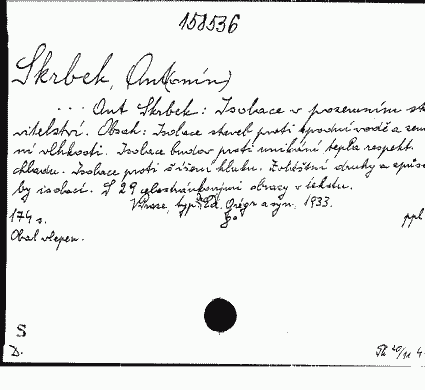 158536
Skrbek, Ant(onín)
... Ant Skrbek: Isolace v pozemním sta
vitelství. Obsah: Isolace staveb proti spodní vodě a zem
ní vlhkosti. Isolace budov proti unikání tepla respekt.
chladu. Isolace proti šíření hluku. Zvláštní druhy a způso
by isolací. S 29 celostránkovými obrazy v textu.
V Praze, typ. Ed. Grégr a syn. 1933.
174 s. 8° ppl
Obal vlepen.
S
D.